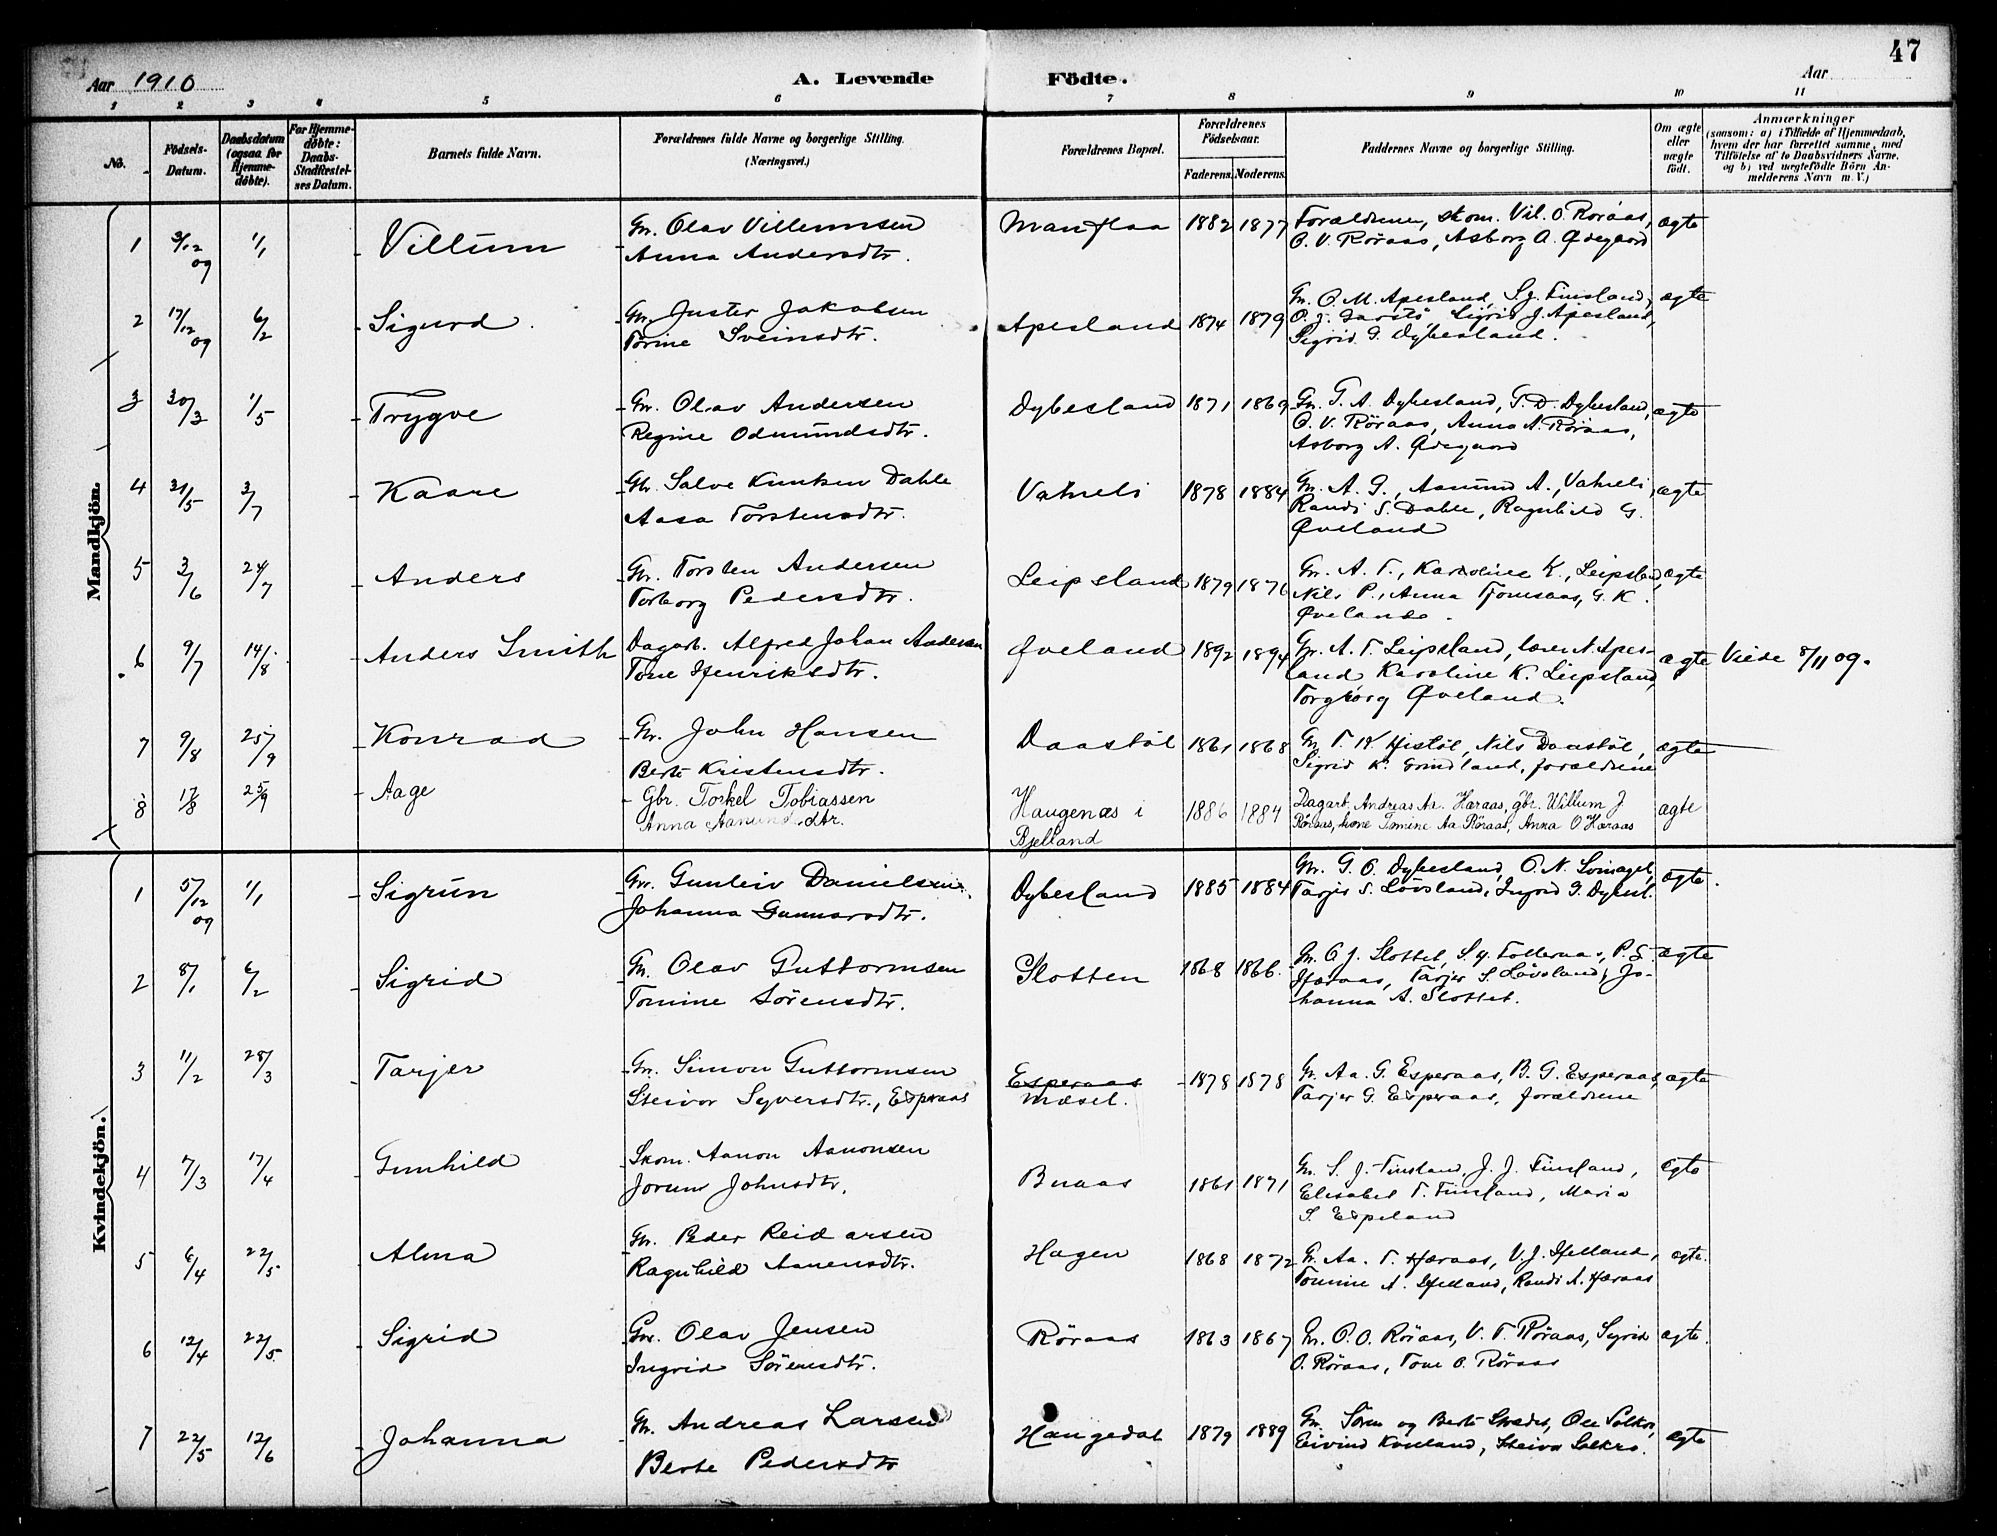 47
Aar 1910
A. Levende Födte.
Aar
1 2 3 4 5 6 7 8 9 10 11
No.
Födsels-Datum.
Daabsdatum (ogsaa for Hjemme-döbte).
For Hjemme-döbte: Daabs-Stadfæstel-ses Datum.
Barnets fulde Navn.
Forældrenes fulde Navne og borgerlige Stilling. (Næringsvei.)
Forældrenes Bopæl.
Forældrenes Födselsaar.
Faderens. Moderens.
Faddernes Navne og borgerlige Stilling.
Om ægte eller uægte födt.
Anmærkninger
(saasom: a) i Tilfælde af Hjemmedaab, hvem der har forrettet samme, med Tilföielse af to Daabsvidners Navne, og b) ved uægtefödte Börn An-melderens Navn m. V.)
Mandkjön.
1 3/12 09 1/1 Villum Gr. Olav Villumsen Manflaa 1882 1877 Forældrene, skom. Vil. O. Röraas, ægte
Anna Andersdtr. O. V. Röraas, Asborg A. Ødegaard
2 17/12 09 6/2 Sigurd Gr. Juster Jakobsen Apesland 1874 1879 Gr. O. M. Apesland, S. J. Finsland, ægte
Torine Sveinsdtr. O. J. Sigrid J. Apesland,
Sigrid G. Dybesland.
3 30/3 1/5 Trygve Gr. Olav Andersen Dybesland 1871 1869 Gr. T. A. Dybesland, T. D. Dybesland, ægte
Regine Odmundsdtr. O. V. Röraas, Anna A. Röraas,
Asborg A. Ødegaard
4 31/5 3/7 Kaare Gbr. Salve Knutsen Dahle Vahreli 1878 1884 Gr. A. G., Aanund A., Vahreli, ægte
Aasa Torstensdtr. Randi S. Dahle, Ragnhild G.
Øveland
5 3/6 24/7 Anders Gr. Torsten Andersen Leipsland 1879 1876 Gr. A. T., Karoline K., Leipsland, ægte
Torborg Pedersdtr. Nils P., Anna Tjomsaas, G. K.
Øveland.
6 9/7 14/8 Anders Smith Dagarb. Alfred Johan Andersen Øveland 1892 1894 Gr. A. T. Leipsland, lærer N. Apes- ægte Viede 8/11 09.
Tone Henriksdtr. land Karoline K. Leipsland,
Torgborg Øveland.
7 9/8 25/9 Konrad Gr. John Hansen Daastöl 1861 1868 Gr. T. K. Histöl, Nils Daastöl, ægte
Berte Kristensdtr. Sigrid K. Grindland, forældrene
8 17/8 25/9 Aage Gbr. Torkel Tobiassen Haugenæs i 1886 1884 Dagarb. Andreas Aa. Haraas, gbr. Willum J. ægte
Anna Aanundsdtr. Bjelland Röraas, kone Tomine Aa. Röraas, Anna O Haraas
Kvindekjön.
1 5/12 09 1/1 Sigrun Gr. Gunleiv Danielsen Dybesland 1885 1884 Gr. G. O. Dybesland, O. N. ægte.
Johanna Gunnarsdtr. Tarjer S. Lövsland, Ingrid G. Dybesl.
2 8/1 6/2 Sigrid Gr. Olav Guttormsen Slotten 1868 1866. Gr. O J. Slottet, P. S. ægte
Tomine Sörensdtr. Haraas, Tarjer S. Lövsland, Jo-
hanna A. Slottet.
3 11/2 28/3 Tarjer Gr. Simon Guttormsen Esperaas 1878 1878 Gr. Aa. G. Esperaas, B. G. Esperaas, ægte
Steivor Syversdtr., Esperaas Mæsel. Tarjer G. Esperaas, forældrene
4 7/3 17/4 Gunhild Skom. Aanon Aanonsen Buaas 1861 1871 Gr. S. J. Finsland, J. J. Finsland, ægte
Jorun Johnsdtr. Elisabet T. Finsland, Maria
S. Espeland
5 6/4 22/5 Alma Gr. Peder Reidarsen Hagen 1868 1872 Gr. Aa. T. Haraas, V. J. Hælland, ægte.
Ragnhild Aanensdtr. Tomine A. Hælland, Randi A. Haraas
6 12/4 22/5 Sigrid Gr. Olav Jensen Röraas 1863 1867 Gr. O. O. Röraas, V. T. Röraas, Sigrid ægte.
Ingrid Sörensdtr. O. Röraas, Tone O. Röraas
7 22/5 12/6 Johanna Gr. Andreas Larsen Haugedal 1879 1889 Gr. Sören og Berte Ole ægte
Berte Pedersdtr Eivind Steivor